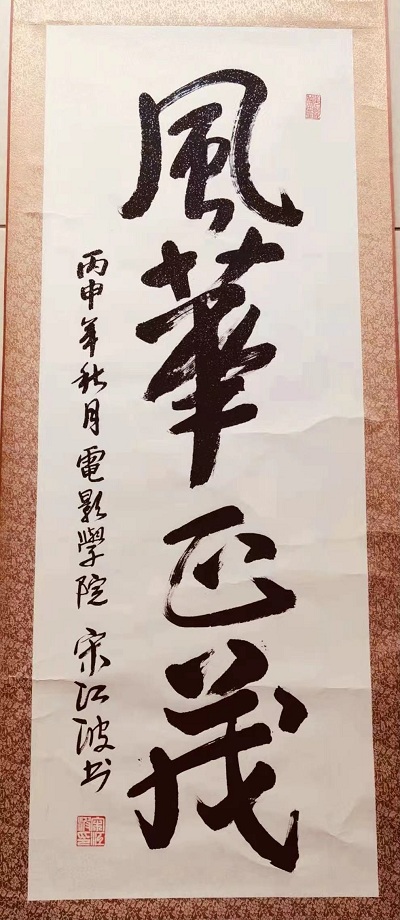 風華正茂
丙申年秋月電影學院宋江波书